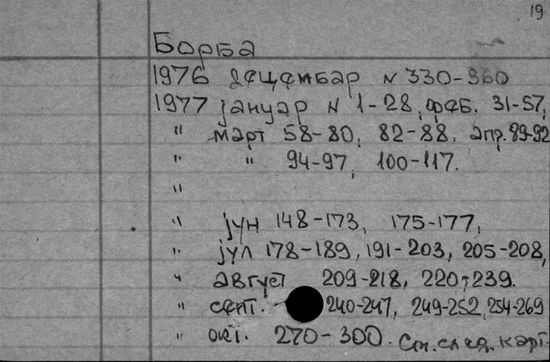 19
Борба
1976 децембар N 330-360
1977 јануар N 1-28, феб. 31-57,
" март 58-80, 82-88, апр. 89-92
" " 94-97, 100-117.
"
" јун 148-173, 175-177,
" јул 178-189, 191-203, 205-208,
" август 209-218, 220-239.
" септ. 240-247, 249-252, 254-269
" окт. 270-300. См. след. карт.